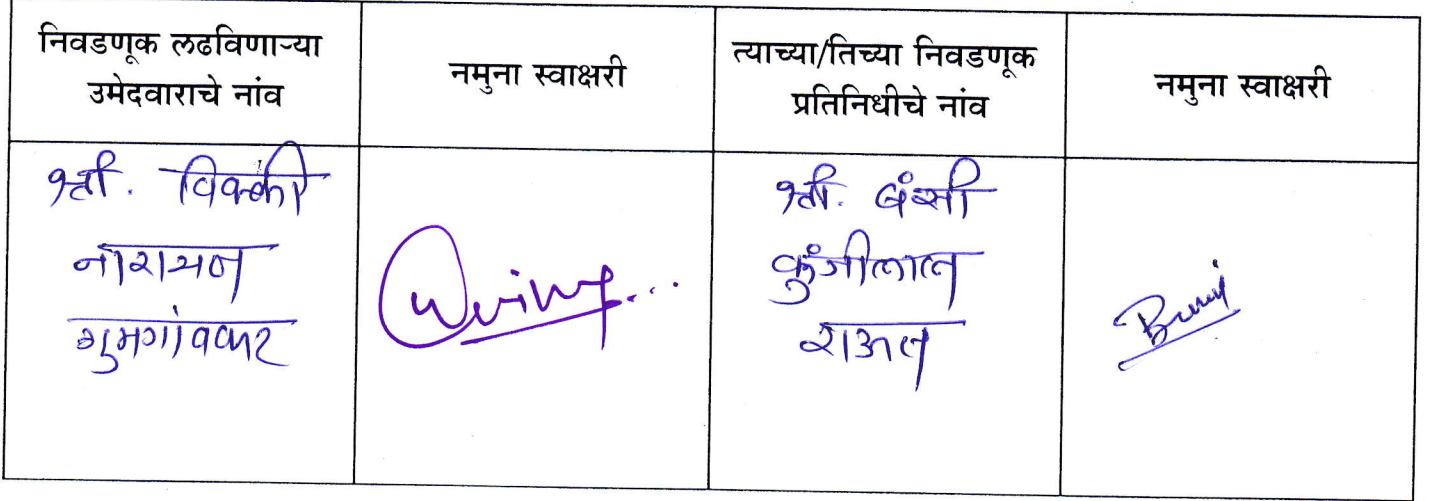 निवडणूक लढविणाऱ्या
उमेदवाराचे नांव
नमुना स्वाक्षरी
त्याच्या/तिच्या निवडणूक
प्रतिनिधीचे नांव
नमुना स्वाक्षरी
श्री. विक्की
नारायण
गुमगांवकर
श्री. बंसी
कुंजीलाल
राऊत